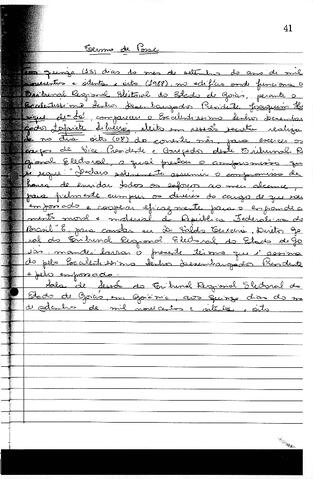 41
Termo de Posse
aos quinze (15) dias do mês de setembro do ano de mil
novecentos e oitenta e oito (1988), no edifício onde funciona o
Tribunal Regional Eleitoral do Estado de Goiás, perante o
Excelentíssimo Senhor Desembargador Presidente Joaquim Hen
rique de Sá, compareceu o Excelentíssimo Senhor Desembar
gador eleito em sessão secreta realiza
no dia oito (08) do corrente mês, para exercer os
cargos de Vice Presidente e Corregedor deste Tribunal Re
gional Eleitoral, o qual prestou o compromisso que
se segue: "Declaro solenemente assumir o compromisso de
honra de envidar todos os esforços ao meu alcance,
para fielmente cumprir os deveres do cargo de que sou
empossado e cooperar eficazmente para o engrandeci
mento moral e material da República Federativa do
Brasil". E, para constar eu, Dire
tor Geral do Tribunal Regional Eleitoral do Estado de Go
iás, mandei lavrar o presente termo que é assina
do pelo Excelentíssimo Senhor Desembargador Presidente
e pelo empossado.
Sala de Sessões do Tribunal Regional Eleitoral do
Estado de Goiás, em Goiânia, aos quinze dias do mês
de setembro de mil novecentos e oitenta e oito